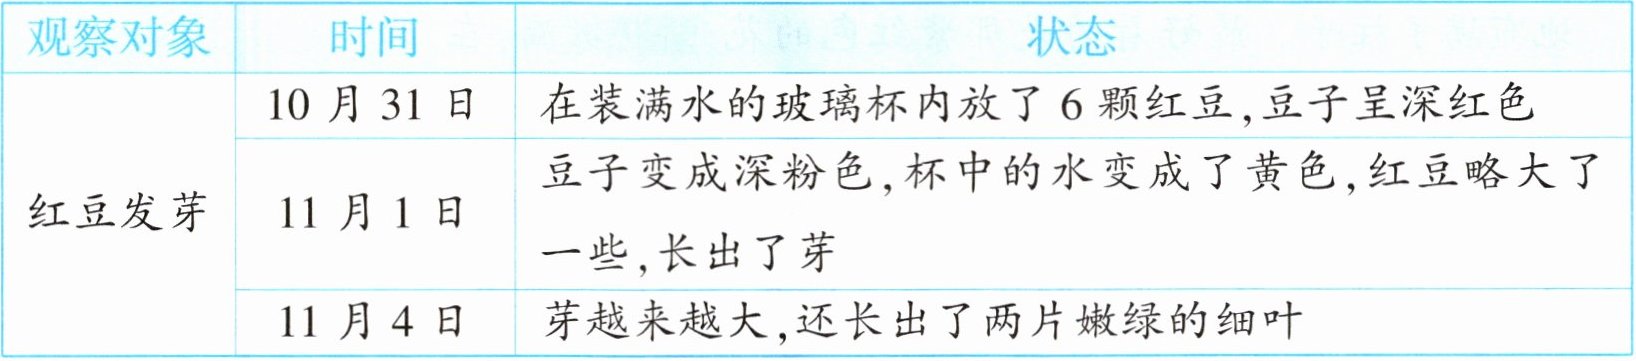 观察对象 时间 状态
10 月 31 日 在装满水的玻璃杯内放了 6 颗红豆,豆子呈深红色
红豆发芽 11 月 1 日 豆子变成深粉色,杯中的水变成了黄色,红豆略大了
一些,长出了芽
11 月 4 日 芽越来越大,还长出了两片嫩绿的细叶